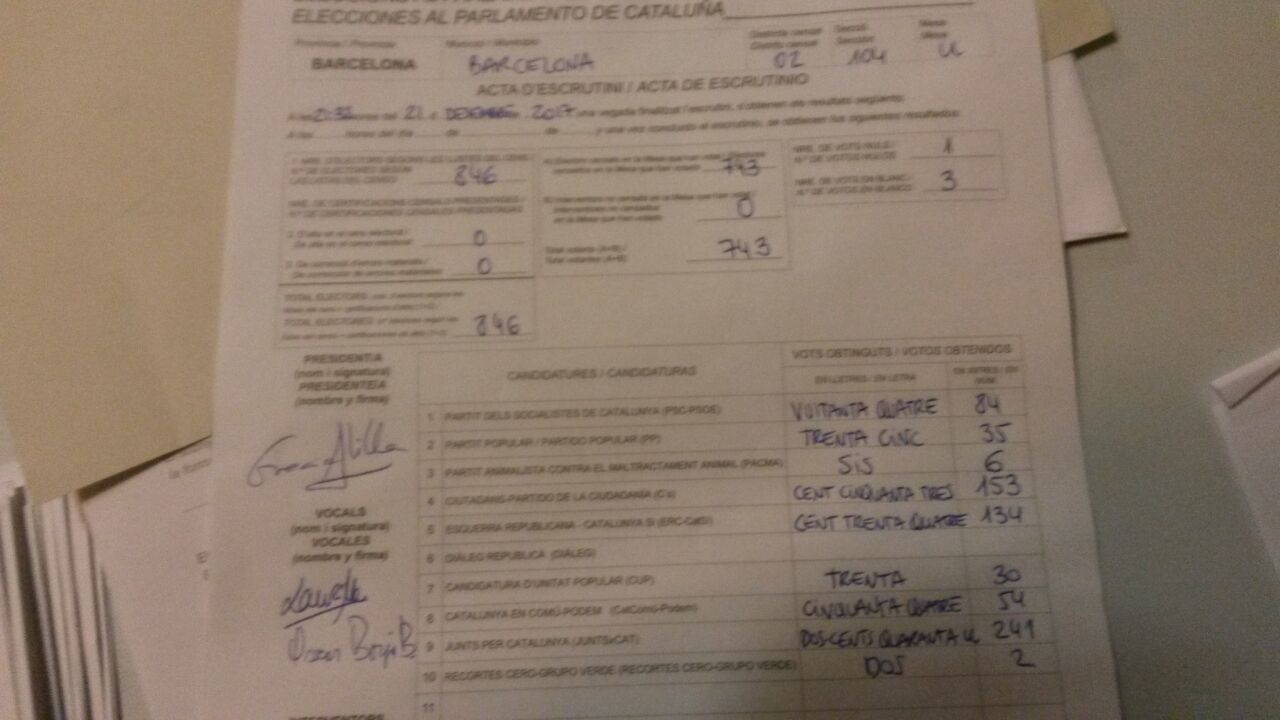 ELECCIONES AL PARLAMENTO DE CATALUÑA
Província / Provincia Municipi / Municipio Districte censal Secció Mesa
Distrito censal Sección Mesa
BARCELONA BARCELONA 02 104 U
ACTA D'ESCRUTINI / ACTA DE ESCRUTINIO
A les 21:32 hores del 21 d DESEMBRE de 2017 una vegada finalitzat l'escrutini, s'obtenen els resultats següents:
A las horas del día de de y una vez concluido el escrutinio, se obtienen los siguientes resultados:
1. NRE. D'ELECTORS SEGONS LES LLISTES DEL CENS /
N.º DE ELECTORES SEGÚN
LAS LISTAS DEL CENSO 846
NRE. DE CERTIFICACIONS CENSALS PRESENTADES /
N.º DE CERTIFICACIONES CENSALES PRESENTADAS
2. D'alta en el cens electoral /
De alta en el censo electoral 0
3. De correcció d'errors materials /
De corrección de errores materiales 0
TOTAL ELECTORS
TOTAL ELECTORES 846
censados en la Mesa que han votado 743
en la Mesa que han votado 0
Total votants (A+B) /
Total votantes (A+B) 743
NRE. DE VOTS NULS /
N.º DE VOTOS NULOS 1
NRE. DE VOTS EN BLANC /
N.º DE VOTOS EN BLANCO 3
PRESIDENT/A
(nom i signatura)
PRESIDENTE/A
(nombre y firma)
VOCALS
(nom i signatura)
VOCALES
(nombre y firma)
CANDIDATURES / CANDIDATURAS VOTS OBTINGUTS / VOTOS OBTENIDOS
EN LLETRES / EN LETRA EN XIFRES / EN NÚM.
1 PARTIT DELS SOCIALISTES DE CATALUNYA (PSC-PSOE) VUITANTA QUATRE 84
2 PARTIT POPULAR / PARTIDO POPULAR (PP) TRENTA CINC 35
3 PARTIT ANIMALISTA CONTRA EL MALTRACTAMENT ANIMAL (PACMA) SIS 6
4 CIUTADANS-PARTIDO DE LA CIUDADANÍA (C's) CENT CINQUANTA TRES 153
5 ESQUERRA REPUBLICANA - CATALUNYA SÍ (ERC-CatSí) CENT TRENTA QUATRE 134
6 DIÀLEG REPÚBLICA (DIÀLEG)
7 CANDIDATURA D'UNITAT POPULAR (CUP) TRENTA 30
8 CATALUNYA EN COMÚ-PODEM (CatComú-Podem) CINQUANTA QUATRE 54
9 JUNTS PER CATALUNYA (JUNTSxCAT) DOS-CENTS QUARANTA U 241
10 RECORTES CERO-GRUPO VERDE (RECORTES CERO-GRUPO VERDE) DOS 2
11